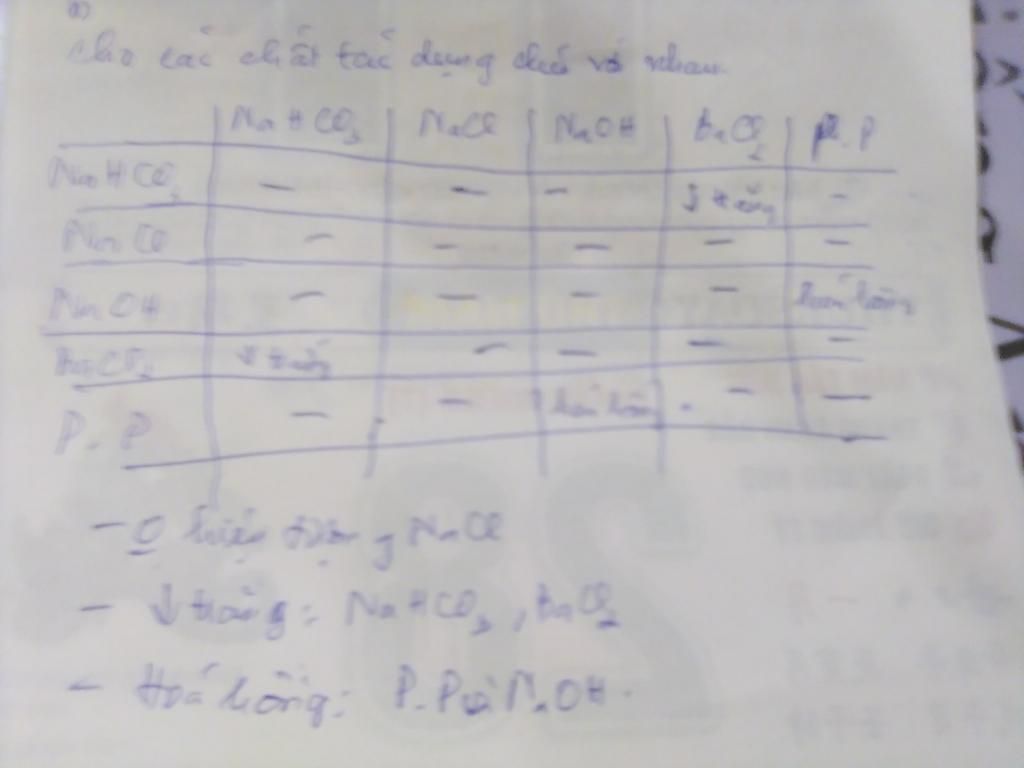 a)
cho các chất tác dụng với nhau
NaHCO3 NaCl NaOH BaCl2 P.P
NaHCO3 – – – ↓ trắng –
NaCl – – – – –
NaOH – – – – hoá hồng
BaCl2 ↓ trắng – – – –
P.P – – hoá hồng – –
– O hiện tượng NaCl
– ↓ trắng: NaHCO3, BaCl2
– Hoá hồng: P.P và NaOH.